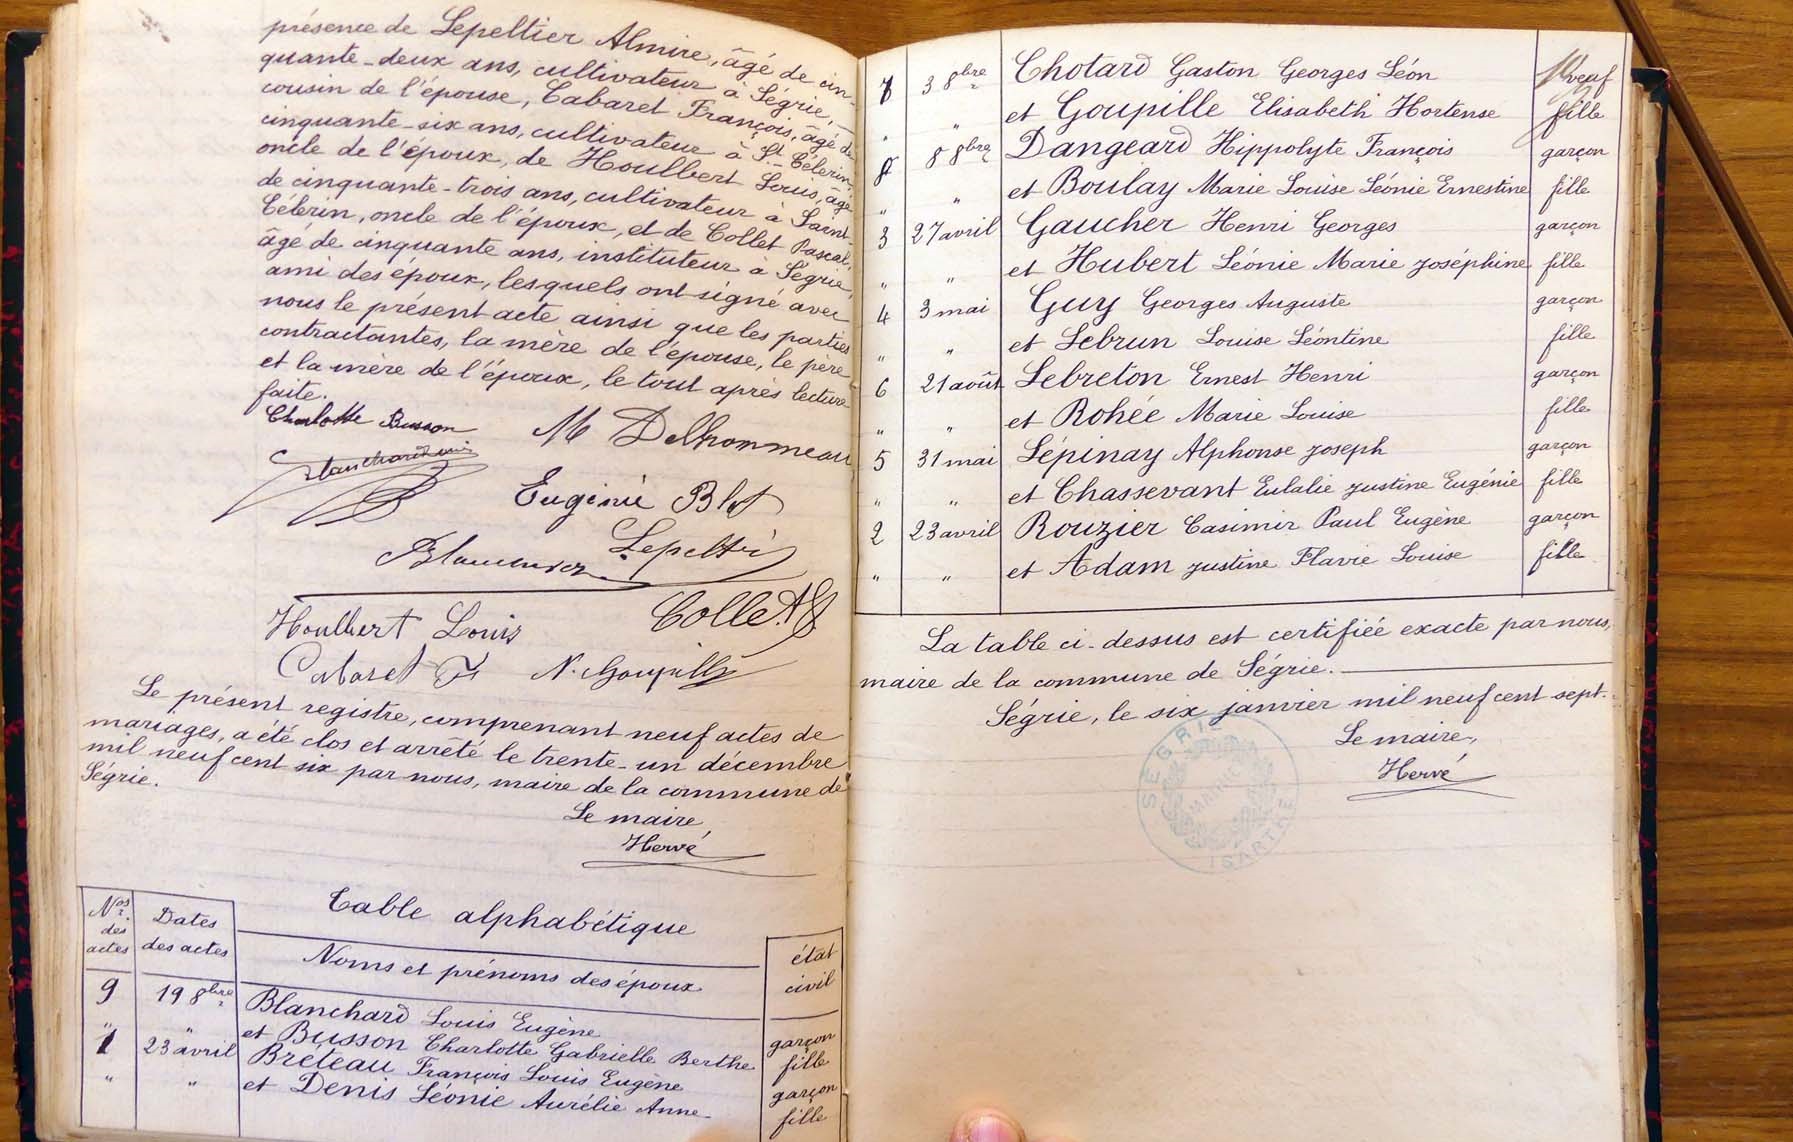 présence de Lepeltier Almire, âgé de cin-
quante-deux ans, cultivateur à Ségrie,
cousin de l'épouse, Cabaret François, âgé de
cinquante-six ans, cultivateur à St Célerin,
oncle de l'époux, de Houlbert Louis, âgé
de cinquante-trois ans, cultivateur à Saint-
Célerin, oncle de l'époux, et de Collet Pascal,
âgé de cinquante ans, instituteur à Ségrie,
ami des époux, lesquels ont signé avec
nous le présent acte ainsi que les parties
contractantes, la mère de l'épouse, le père
et la mère de l'époux, le tout après lecture
faite.
Charlotte Busson M Delhommeau
Eugénie Blot
Lepeltier
Houlbert Louis Collet
Cabaret F N. Goupille
Le présent registre, comprenant neuf actes de
mariages, a été clos et arrêté le trente-un décembre
mil neuf cent six par nous, maire de la commune de
Ségrie.
Le maire,
Hervé
Table alphabétique
Nos des actes Dates des actes Noms et prénoms des époux état civil
9 19 8bre Blanchard Louis Eugène garçon
" " et Busson Charlotte Gabrielle Berthe fille
1 23 avril Bréteau François Louis Eugène garçon
" " et Denis Léonie Aurélie Anne fille
7 3 8bre Chotard Gaston Georges Léon veuf
" " et Goupille Elisabeth Hortense fille
8 8 8bre Dangeard Hippolyte François garçon
" " et Boulay Marie Louise Léonie Ernestine fille
3 27 avril Gaucher Henri Georges garçon
" " et Hubert Léonie Marie Joséphine fille
4 3 mai Guy Georges Auguste garçon
" " et Lebrun Louise Léontine fille
6 21 août Lebreton Ernest Henri garçon
" " et Rohée Marie Louise fille
5 31 mai Lépinay Alphonse Joseph garçon
" " et Chassevant Eulalie Justine Eugénie fille
2 23 avril Rouzier Casimir Paul Eugène garçon
" " et Adam Justine Flavie Louise fille
La table ci-dessus est certifiée exacte par nous,
maire de la commune de Ségrie.
Ségrie, le six janvier mil neuf cent sept.
Le maire,
Hervé
SÉGRIE
MAIRIE
(SARTHE)